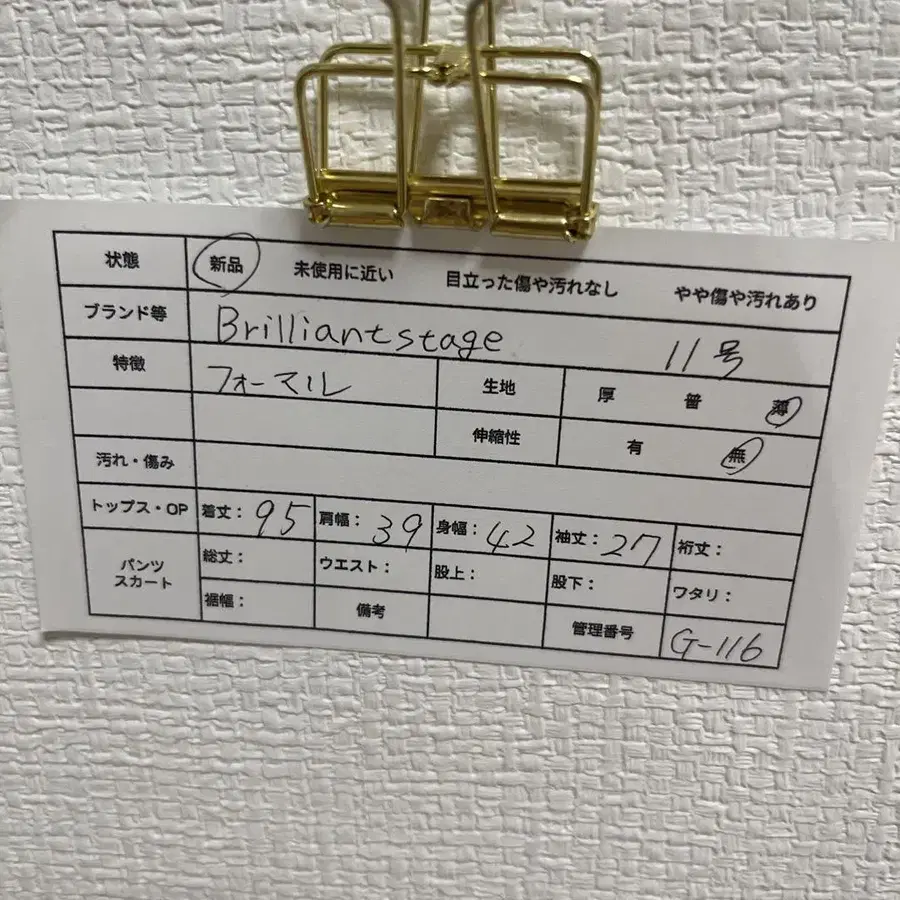 状態 新品 未使用に近い 目立った傷や汚れなし やや傷や汚れあり
ブランド等 Brilliantstage 11号
特徴 フォーマル 生地 厚 普 薄
伸縮性 有 無
汚れ・傷み
トップス・OP 着丈：95 肩幅：39 身幅：42 袖丈：27 裄丈：
パンツ スカート 総丈： ウエスト： 股上： 股下： ワタリ：
裾幅： 備考 管理番号 G-116